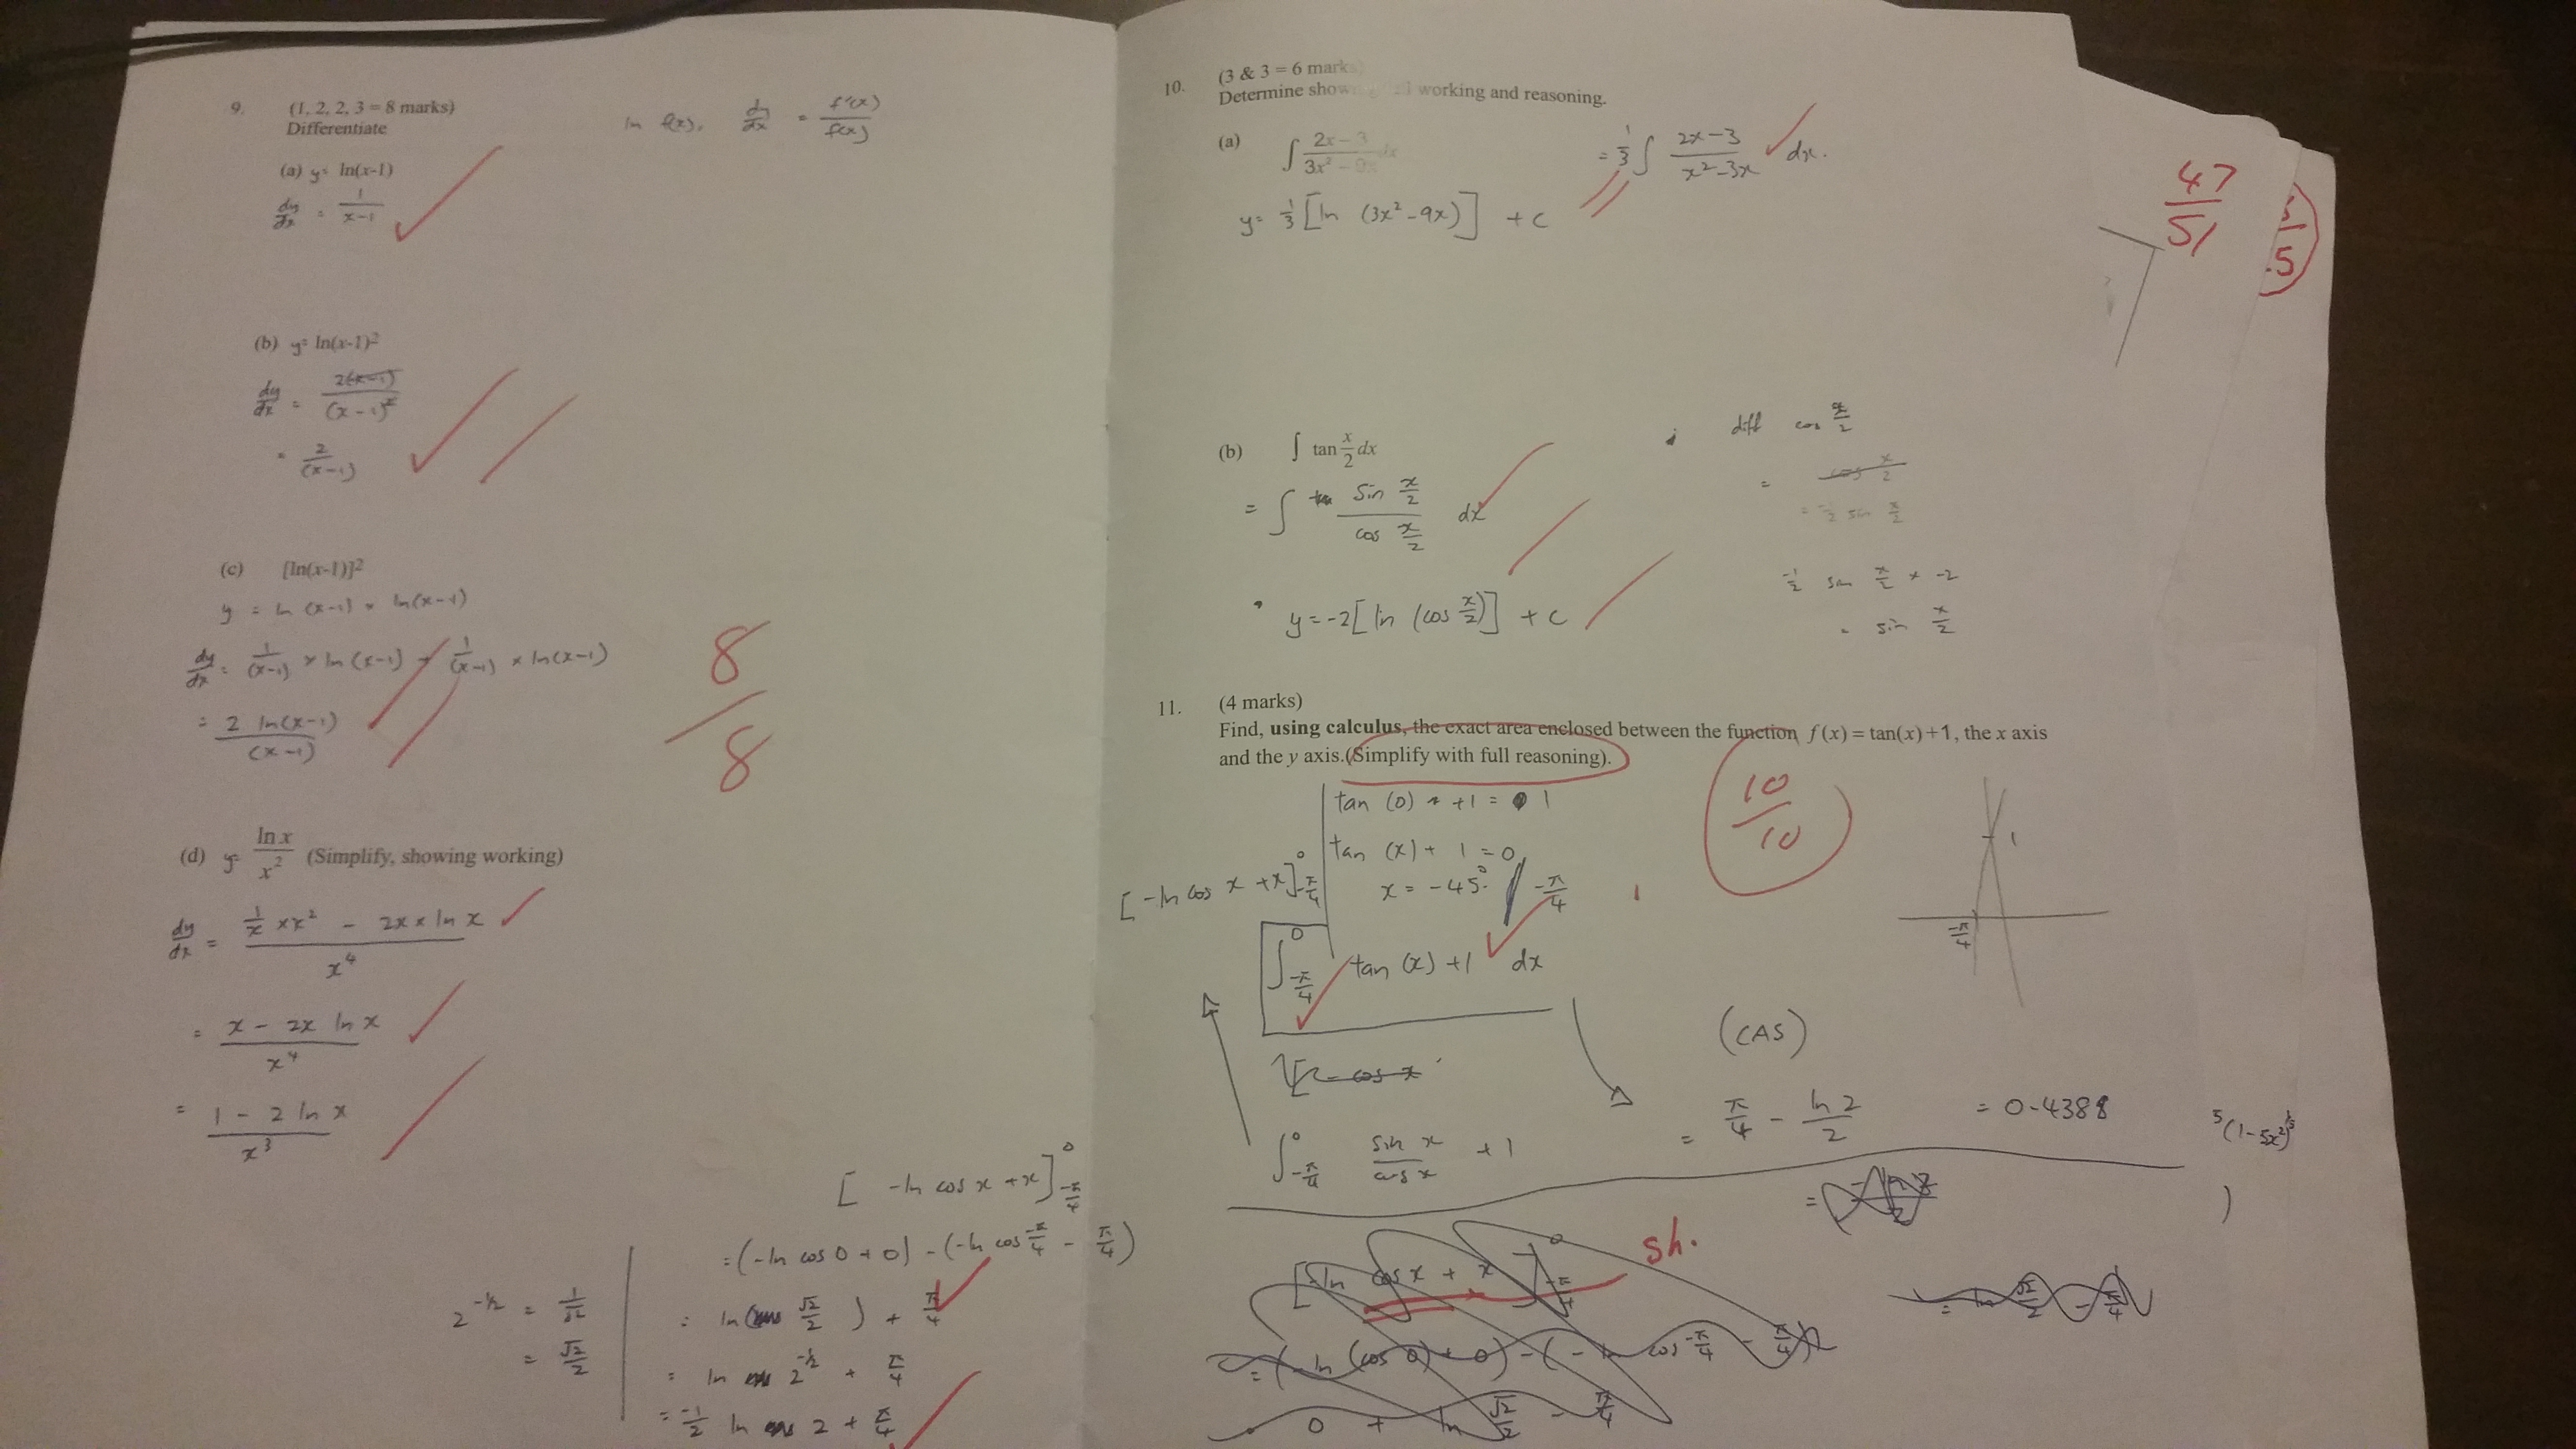 9. (1, 2, 2, 3 = 8 marks)
Differentiate
ln f(x). dy/dx = f'(x)/f(x)
(a) y= ln(x-1)
dy/dx = 1/(x-1)
(b) y= ln(x-1)²
dy/dx = 2(x-1)/(x-1)²
= 2/(x-1)
(c) [ln(x-1)]²
y = ln(x-1) × ln(x-1)
dy/dx = 1/(x-1) × ln(x-1) + 1/(x-1) × ln(x-1)
= 2 ln(x-1)/(x-1)
8/8
(d) y= ln x/x² (Simplify, showing working)
dy/dx = (1/x × x² - 2x × ln x)/x⁴
= (x - 2x ln x)/x⁴
= (1 - 2 ln x)/x³
[-ln cos x + x]⁰₋π/4
= (-ln cos 0 + 0) - (-ln cos -π/4 - π/4)
= ln( √2/2 ) + π/4
= ln 2^-1/2 + π/4
= -1/2 ln 2 + π/4
2^-1/2 = 1/√2
= √2/2
10. (3 & 3 = 6 marks)
Determine working and reasoning.
(a) ∫ (2x-3)/(3x² - 9x) dx = 1/3 ∫ (2x-3)/(x²-3x) dx.
y= 1/3 [ln (3x²-9x)] + c
(b) ∫ tan x/2 dx
= ∫ sin x/2 / cos x/2 dx
y = -2[ln (cos x/2)] + c
diff cos x/2
= cos x/2
= -1/2 sin x/2
-1/2 sin x/2 × -2
= sin x/2
47/51
11. (4 marks)
Find, using calculus, the exact area enclosed between the function f(x) = tan(x)+1, the x axis
and the y axis.(Simplify with full reasoning).
10/10
tan (0) + 1 = 1
tan (x) + 1 = 0
x = -45° -π/4
[-ln cos x + x]⁰₋π/4
∫⁰₋π/4 tan (x) + 1 dx
1
-π/4
(CAS)
= π/4 - ln 2/2 = 0.4388
∫⁰₋π/4 sin x/cos x + 1
5(1-5x²)
[-ln cos x + x]⁰₋π/4
sh.
= (-ln (cos 0) + 0) - (-ln cos -π/4 - π/4)
0 + ln √2/2 - π/4
= ln √2/2 - π/4